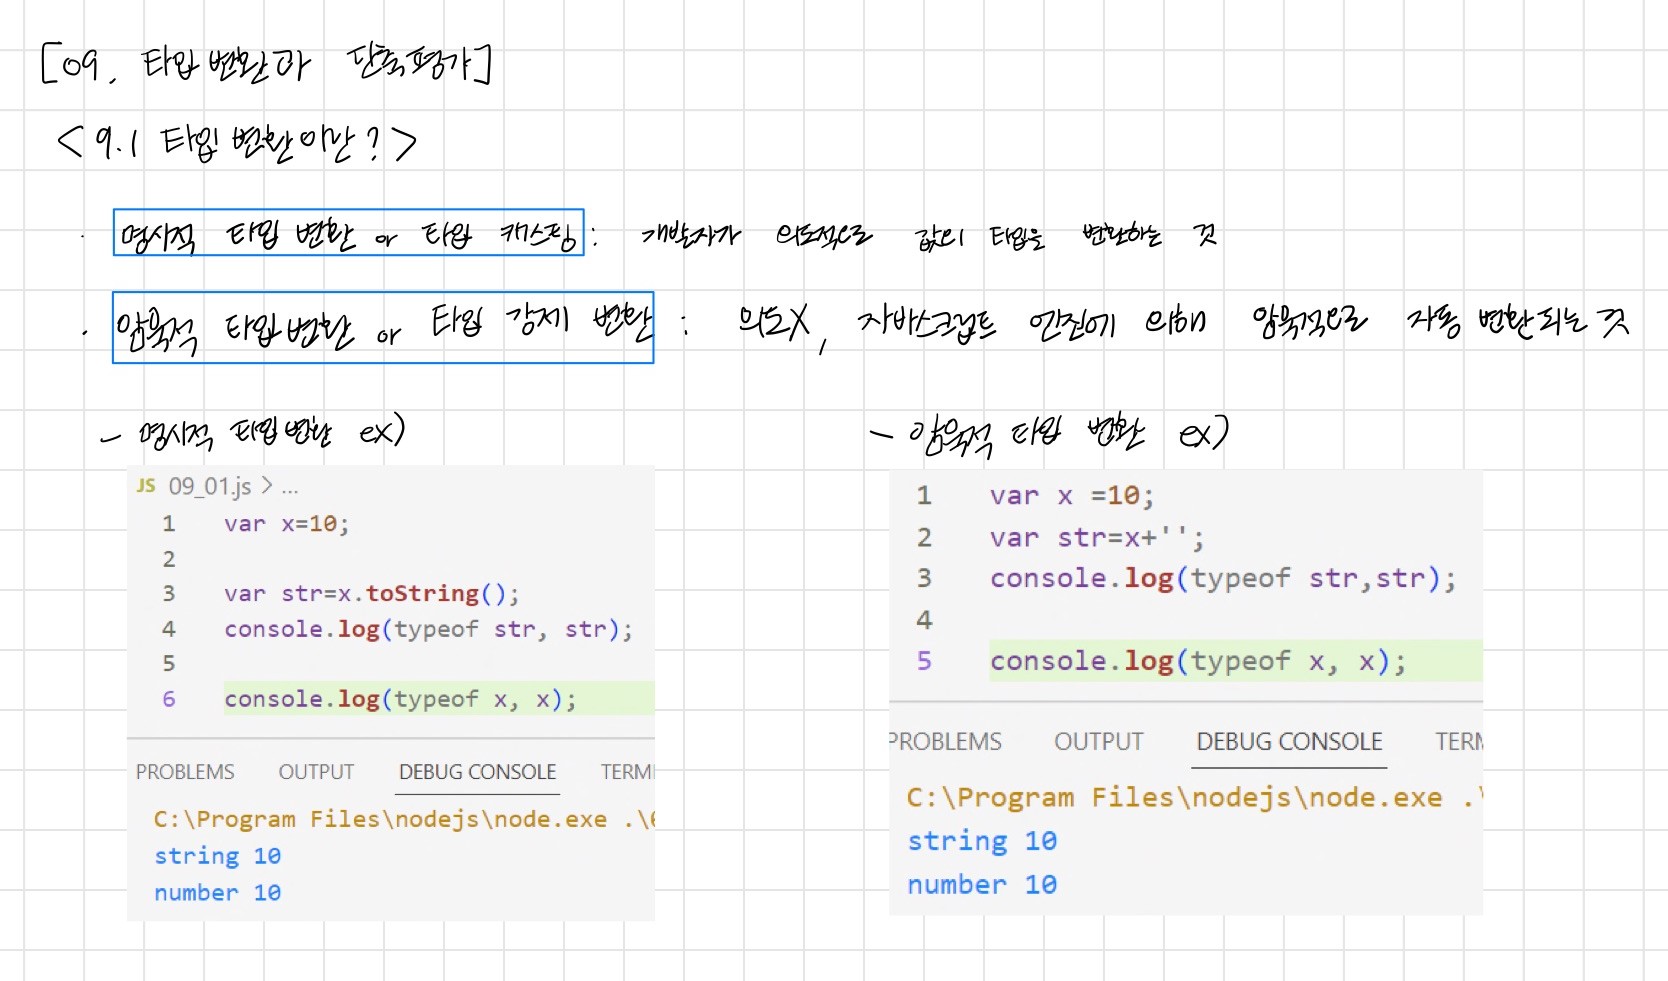 [09. 타입변환과 단축평가]
<9.1 타입 변환이란?>
· 명시적 타입 변환 or 타입 캐스팅 : 개발자가 의도적으로 값의 타입을 변환하는 것
· 암묵적 타입변환 or 타입 강제 변환 : 의도X, 자바스크립트 엔진에 의해 암묵적으로 자동 변환되는 것
- 명시적 타입변환 ex)
JS 09_01.js > ...
1 var x=10;
2
3 var str=x.toString();
4 console.log(typeof str, str);
5
6 console.log(typeof x, x);
PROBLEMS OUTPUT DEBUG CONSOLE TERMI
C:\Program Files\nodejs\node.exe .\
string 10
number 10
- 암묵적 타입 변환 ex)
1 var x =10;
2 var str=x+'';
3 console.log(typeof str,str);
4
5 console.log(typeof x, x);
PROBLEMS OUTPUT DEBUG CONSOLE TERM
C:\Program Files\nodejs\node.exe .\
string 10
number 10